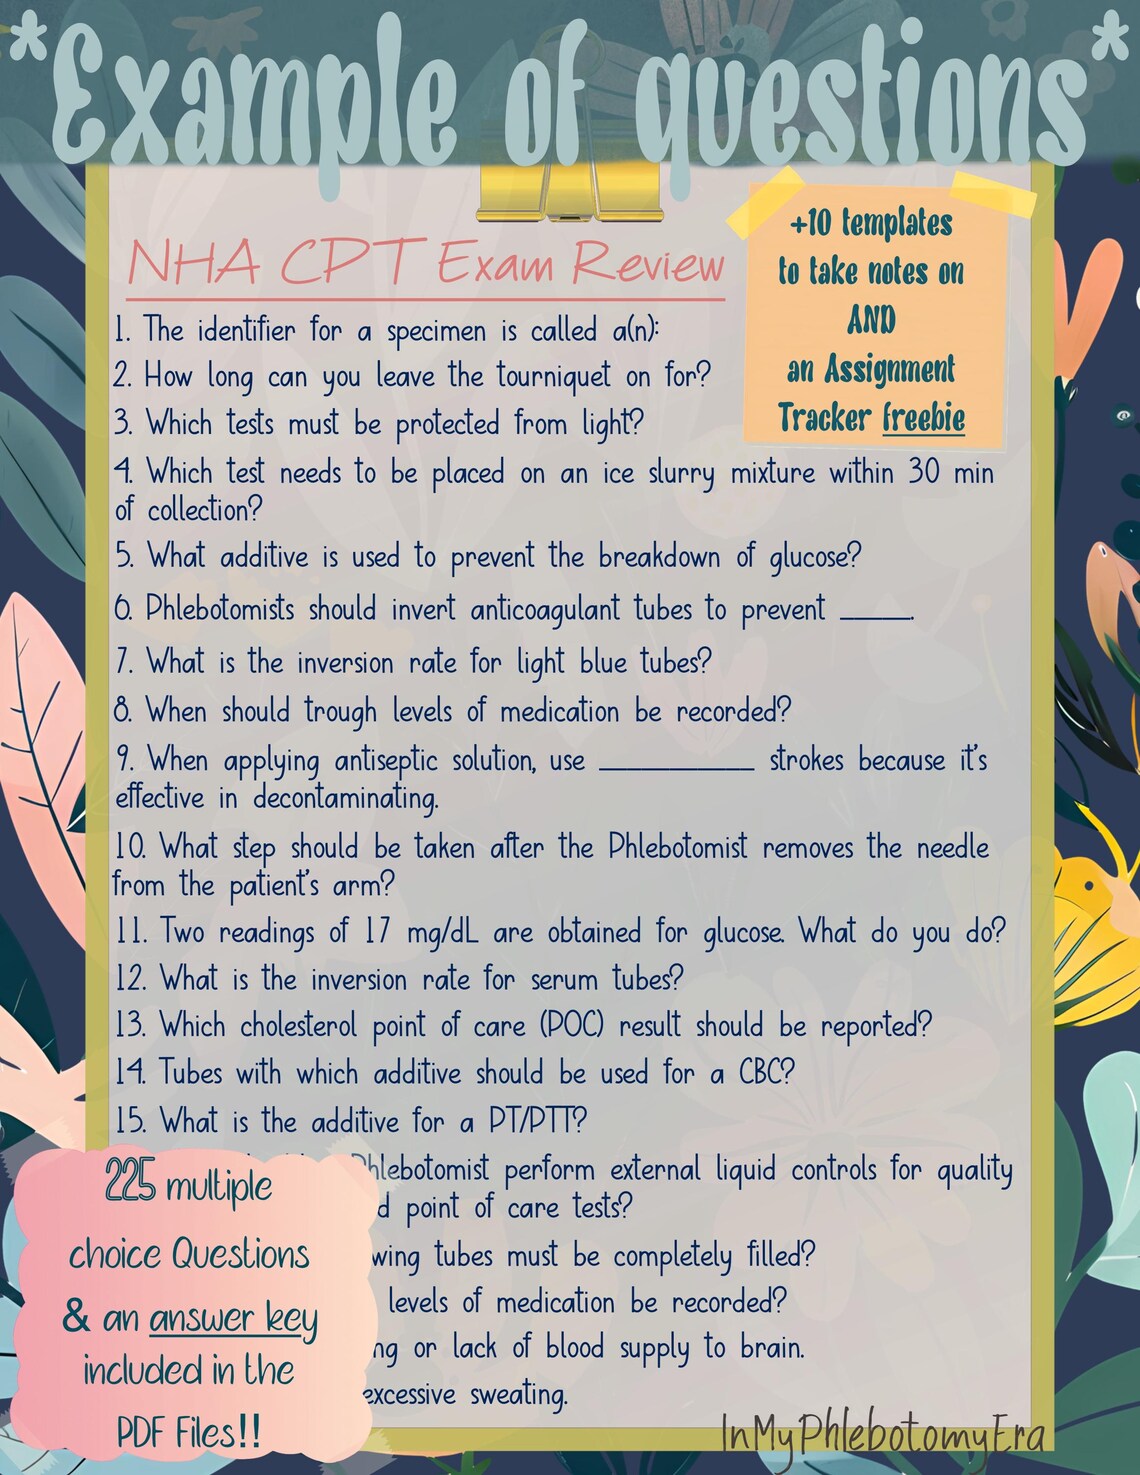 *Example of questions*
NHA CPT Exam Review
+10 templates
to take notes on
AND
an Assignment
Tracker freebie
1. The identifier for a specimen is called a(n):
2. How long can you leave the tourniquet on for?
3. Which tests must be protected from light?
4. Which test needs to be placed on an ice slurry mixture within 30 min
of collection?
5. What additive is used to prevent the breakdown of glucose?
6. Phlebotomists should invert anticoagulant tubes to prevent _____.
7. What is the inversion rate for light blue tubes?
8. When should trough levels of medication be recorded?
9. When applying antiseptic solution, use ___________ strokes because it's
effective in decontaminating.
10. What step should be taken after the Phlebotomist removes the needle
from the patient's arm?
11. Two readings of 17 mg/dL are obtained for glucose. What do you do?
12. What is the inversion rate for serum tubes?
13. Which cholesterol point of care (POC) result should be reported?
14. Tubes with which additive should be used for a CBC?
15. What is the additive for a PT/PTT?
Phlebotomist perform external liquid controls for quality
point of care tests?
tubes must be completely filled?
levels of medication be recorded?
or lack of blood supply to brain.
excessive sweating.
225 multiple
choice Questions
& an answer key
included in the
PDF Files!!
InMyPhlebotomyEra